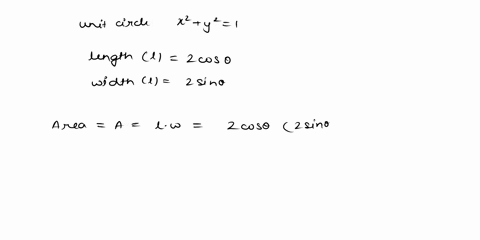 unit circle x²+y²=1
length (l) = 2cosθ
width (l) = 2sinθ
Area = A = l·w = 2cosθ (2sinθ